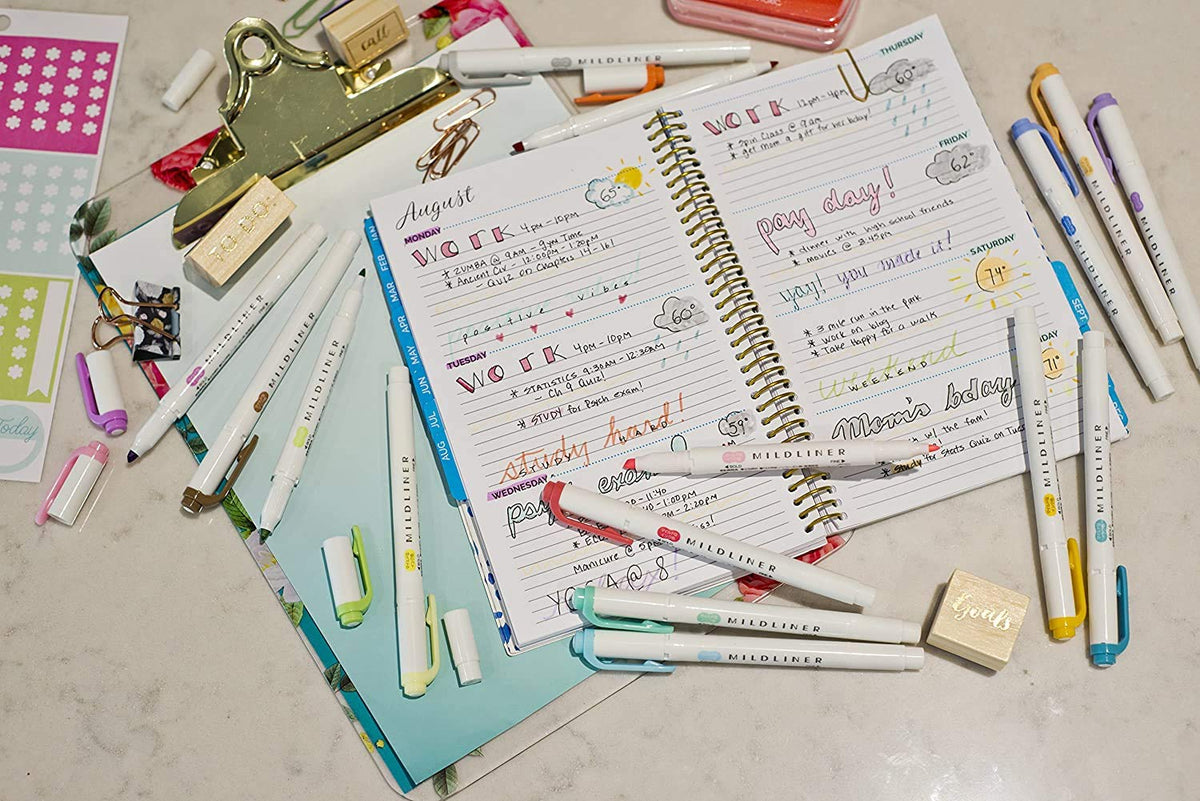 call
TO DO:
Today
MILDLINER
August
MONDAY
65°
WORK 4pm-10pm
* ZUMBA @ 9AM - gym Time
* Ancient Civ - 12:00pm - 1:20pm
- Quiz on Chapters 14-16!
positive vibes!
TUESDAY
60°
WORK 4pm-10pm
* STATISTICS 9:30AM - 12:30AM
- Ch 9 Quiz!
* STUDY for Psych exam!
study hard!
STUDY HARD
59°
WEDNESDAY
Manicure @ 5pm
YOGA @ 8
THURSDAY
60°
WORK 12pm-4pm
* Spin Class @ 9am
* get mom a gift for her bday!
FRIDAY
62°
pay day!
* dinner with high school friends
* movies @ 8:45pm
yay! you made it!
SATURDAY
74°
* 3 mile run in the park
* work on blog
* Take Happy for a walk
weekend
WEEKEND
71°
Mom's bday
JAN
FEB
MAR
APR
MAY
JUN
JUL
AUG
SEPT
MILDLINER
MILDLINER
MILDLINER
MILDLINER
MILDLINER
MILDLINER
MILDLINER
MILDLINER
MILDLINER
MILDLINER
MILDLINER
MILDLINER
MILDLINER
Goals